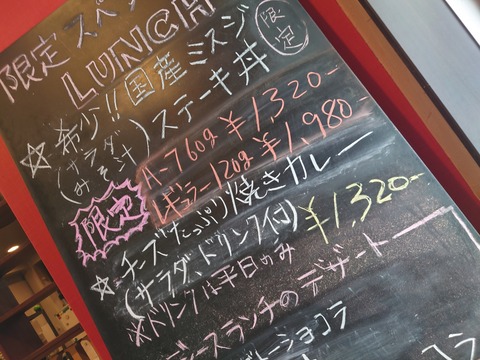 限定 スペ
LUNCH
☆ 希少!! 国産 ミスジ 限定
(サラダ みそ汁) ステーキ丼
ハーフ60g ¥1,320-
限定 レギュラー120g ¥1,980-
☆ チーズたっぷり焼きカレー
(サラダ、ドリンク付) ¥1,320-
※ドリンクは平日のみ
ディースランチのデザート
ショコラ
コラ